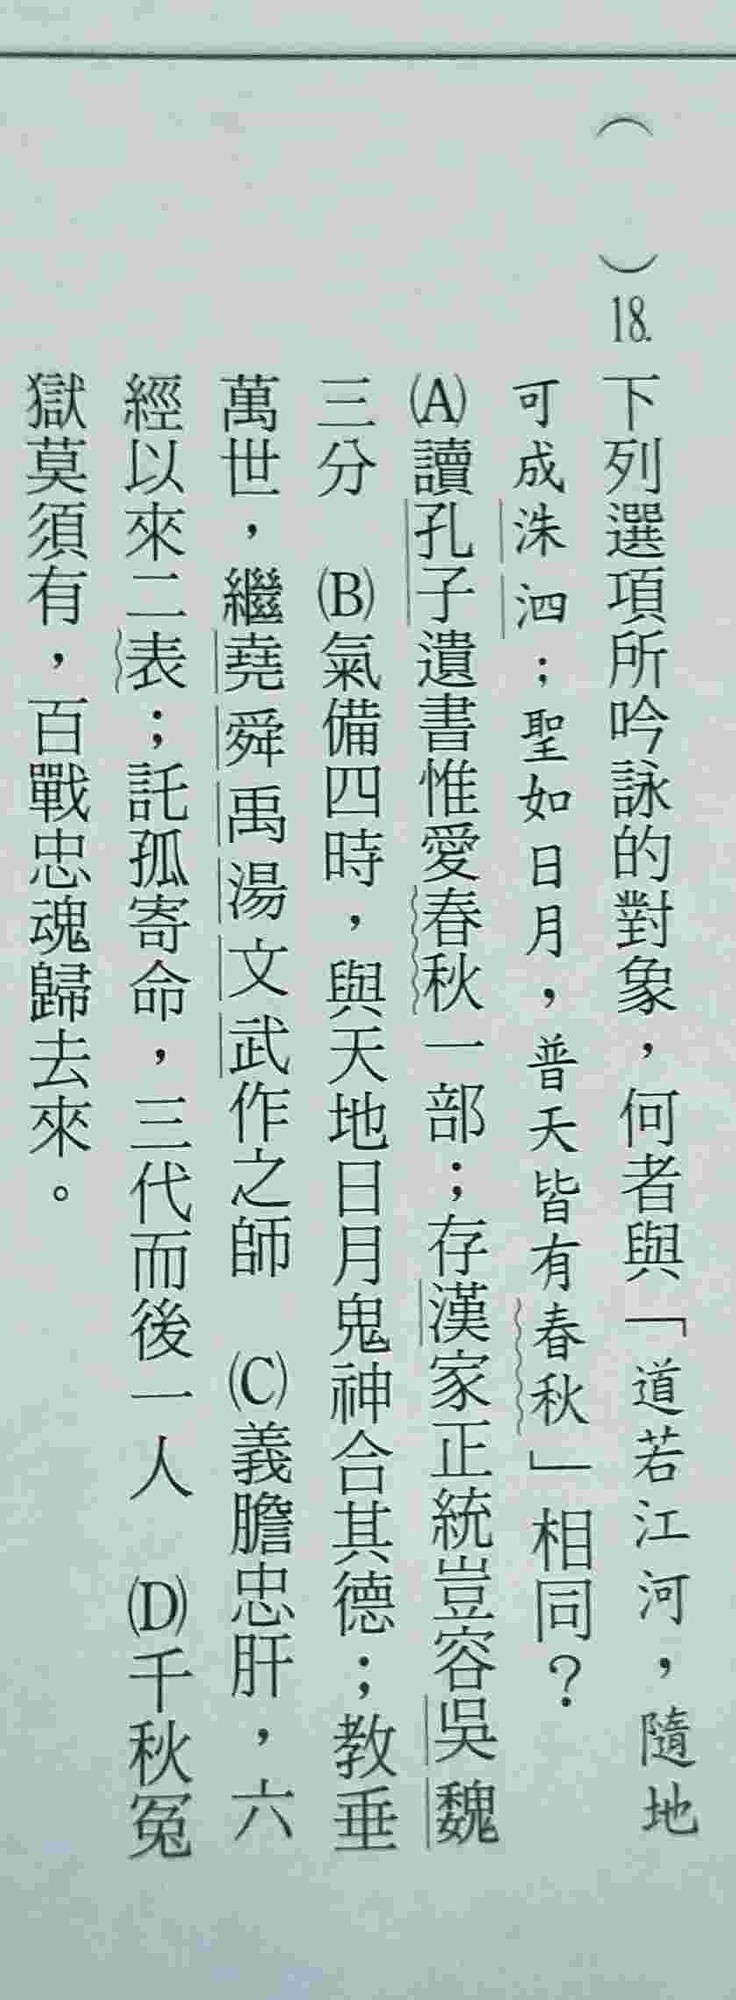 （　　）18.下列選項所吟詠的對象，何者與「道若江河，隨地
可成洙泗；聖如日月，普天皆有春秋」相同？
(A)讀孔子遺書惟愛春秋一部；存漢家正統豈容吳魏
三分　(B)氣備四時，與天地日月鬼神合其德；教垂
萬世，繼堯舜禹湯文武作之師　(C)義膽忠肝，六
經以來二表；託孤寄命，三代而後一人　(D)千秋冤
獄莫須有，百戰忠魂歸去來。